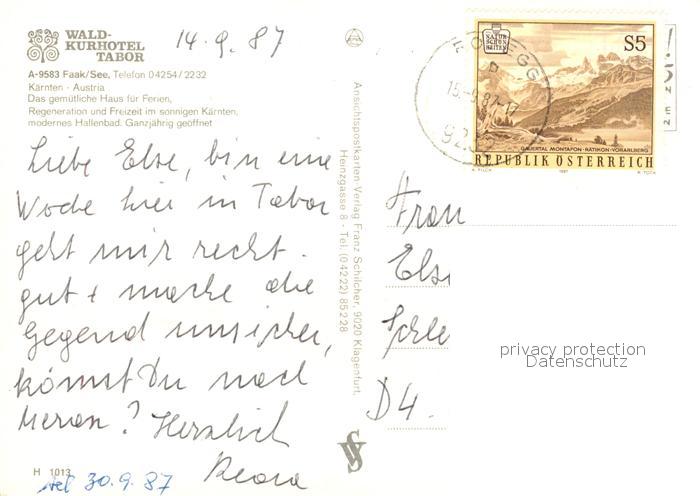 WALD-
KURHOTEL
TABOR
14.9.87
A-9583 Faak/See, Telefon 04254/2232
Kärnten · Austria
Das gemütliche Haus für Ferien,
Regeneration und Freizeit im sonnigen Kärnten,
modernes Hallenbad. Ganzjährig geöffnet
Liebe Else, bin eine
Woche hier in Tabor
geht mir recht
gut + mache die
Gegend unsicher,
kommst Du nach
Meran? Herzlich
H 1013
30.9.87
Ansichtspostkarten-Verlag Franz Schilcher, 9020 Klagenfurt,
Heinzgasse 8 - Tel. (04222) 85228
NATUR
SCHÖN
HEITEN
S5
GAUERTAL MONTAFON · RÄTIKON · VORARLBERG
REPUBLIK ÖSTERREICH
1987
15.-9.87-17
Frau
Else
D4.
privacy protection
Datenschutz